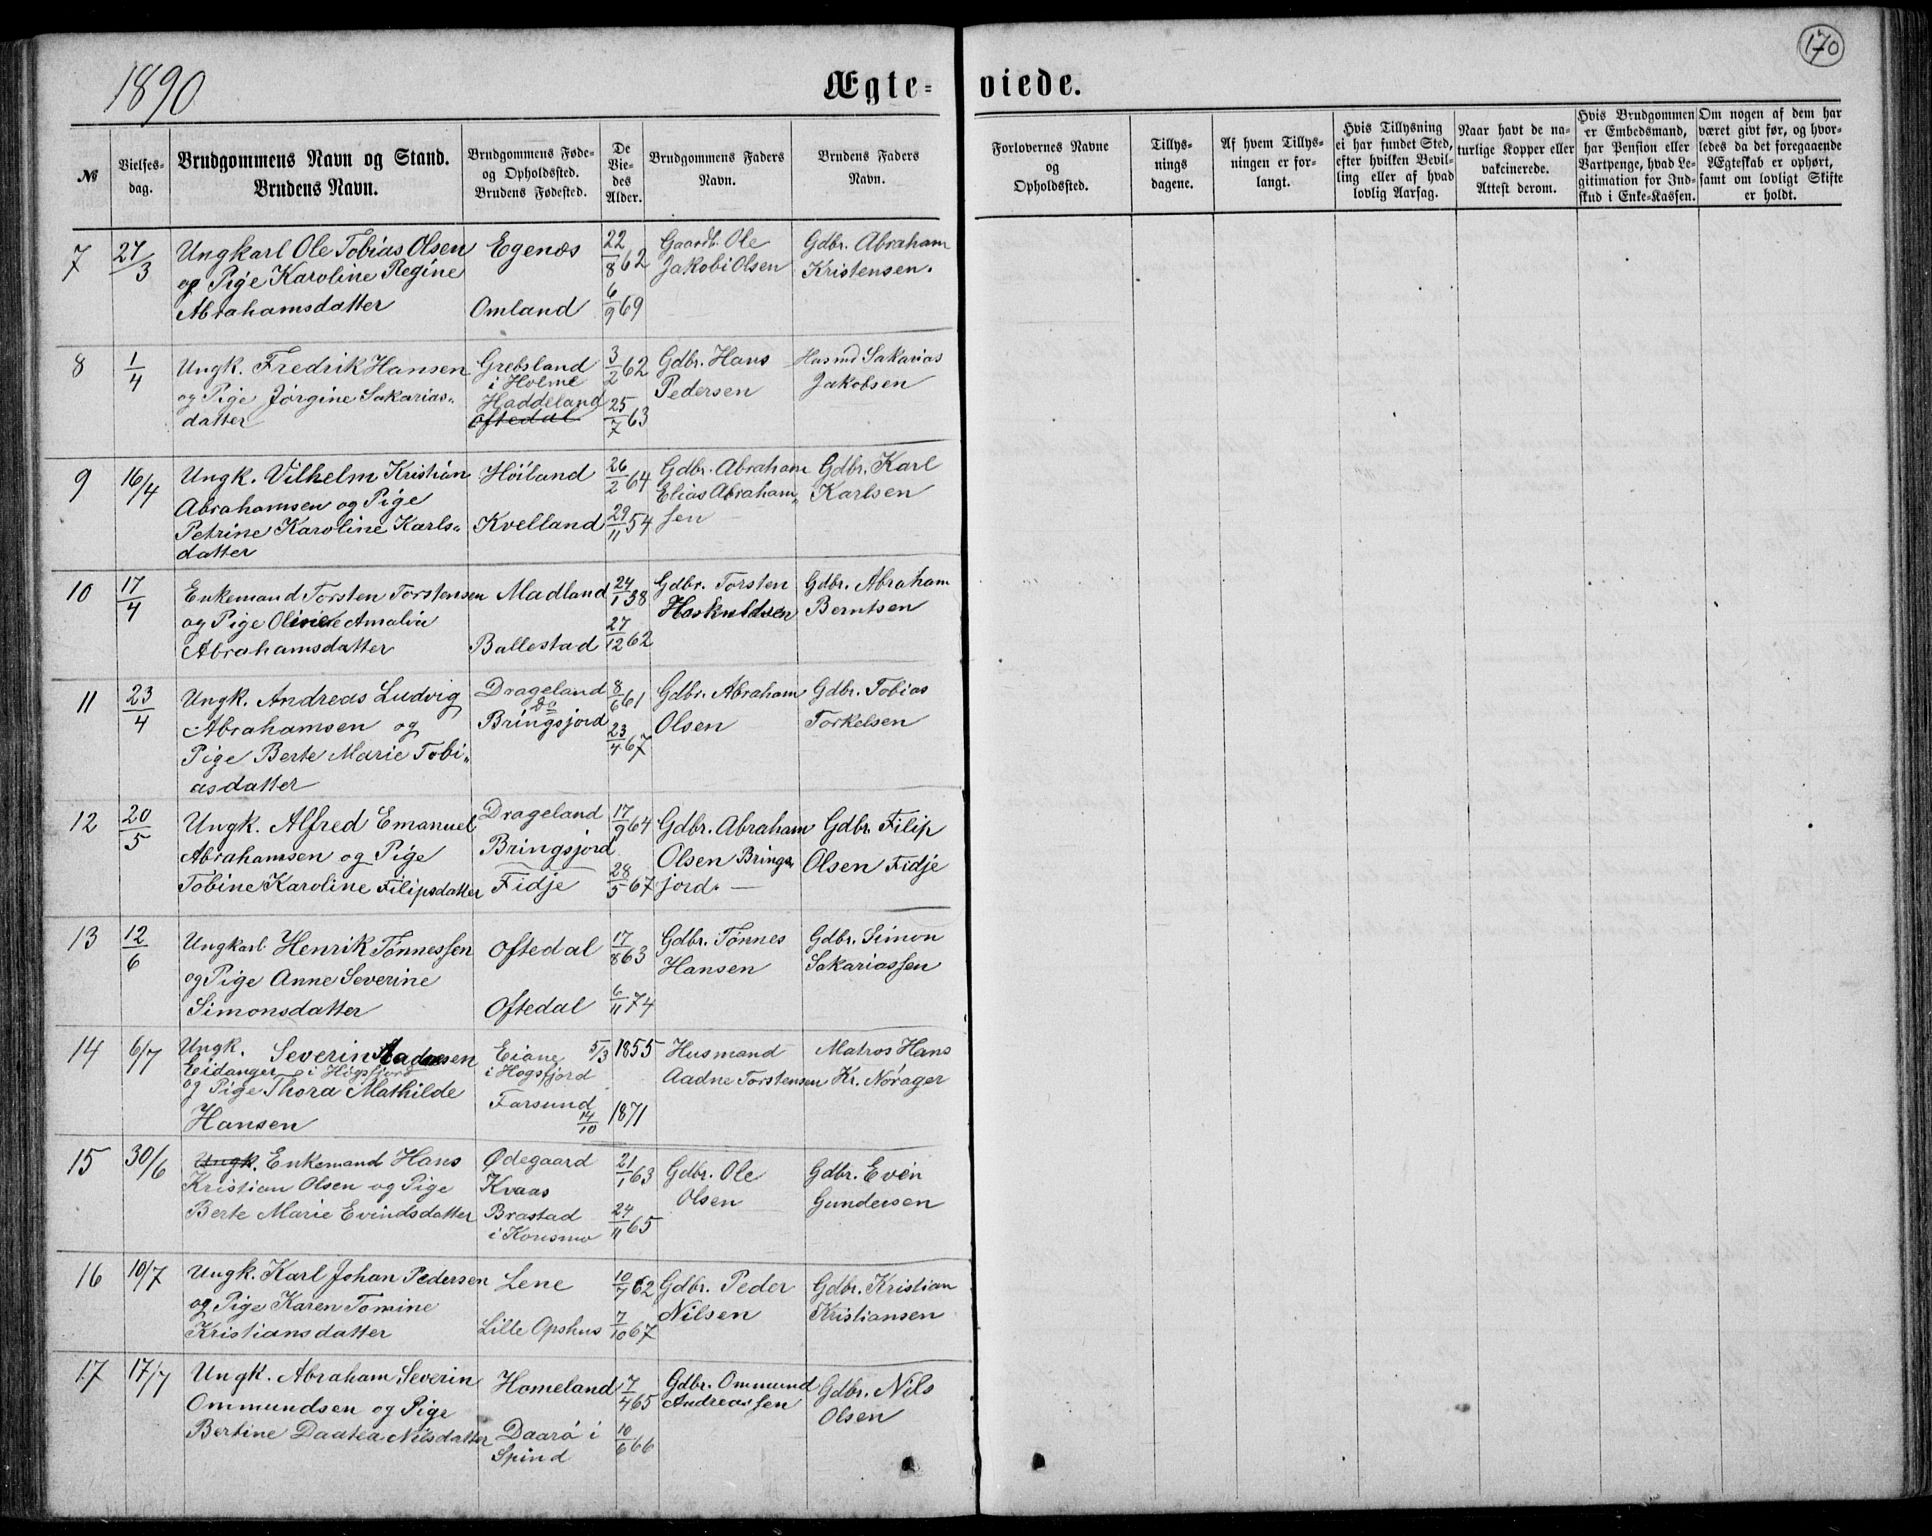 170
1890
Ægte= viede.
№
Vielses-
dag.
Brudgommens Navn og Stand.
Brudens Navn.
Brudgommens Føde-
og Opholdssted.
Brudens Fødested.
De
Vie-
des
Alder.
Brudgommens Faders
Navn.
Brudens Faders
Navn.
Forlovernes Navne
og
Opholdssted.
Tillys-
nings
dagene.
Af hvem Tillys-
ningen er for-
langt.
Hvis Tillysning
ei har fundet Sted,
efter hvilken Bevil-
ling eller af hvad
lovlig Aarsag.
Naar havt de na-
turlige Kopper eller
vakcinerede.
Attest derom.
Hvis Brudgommen
er Embedsmand,
har Pension eller
Vartpenge, hvad Le-
gitimation for Ind-
skud i Enke-Kassen.
Om nogen af dem har
været givt før, og hvor-
ledes da det foregaaende
Ægteskab er ophørt,
samt om lovligt Skifte
er holdt.
7 27/3 Ungkarl Ole Tobias Olsen Egenæs 22/8 62 Gaardb. Ole Gdbr. Abraham
og Pige Karoline Regine Jakobi Olsen Kristensen.
Abrahamsdatter Omland 6/9 69
8 1/4 Ungk. Fredrik Hansen Grebsland 3/2 62 Gdbr. Hans Husmd Sakarias
i Holme Pedersen Jakobsen
og Pige Jörgine Sakarias- Haddeland 25/7 63
datter Oftedal
9 16/4 Ungk. Vilhelm Kristian Höiland 26/2 64 Gdbr. Abraham Gdbr. Karl
Abrahamsen og Pige Elias Abraham- Karlsen
Petrine Karoline Karls- Kvelland 29/11 54 sen
datter
10 17/4 Enkemand Torsten Torstensen Madland 24/1 38 Gdbr. Torsten Gdbr. Abraham
og Pige Oline Amalie Haskuldsen Berntsen
Abrahamsdatter Ballestad 27/12 62
11 23/4 Ungk. Andreas Ludvig Drageland 8/6 61 Gdbr. Abraham Gdbr. Tobias
Abrahamsen og Do Bringsjord 23/4 67 Olsen Torkelsen
Pige Berte Marie Tobi-
asdatter
12 20/5 Ungk. Alfred Emanuel Drageland 17/9 64 Gdbr. Abraham Gdbr. Filip
Abrahamsen og Pige Bringsjord Olsen Brings- Olsen Fidje
Tobine Karoline Filipsdatter Fidje 28/5 67 jord. —
13 12/6 Ungkarl Henrik Tønnessen Oftedal 17/8 63 Gdbr. Tønnes Gdbr. Simon
og Pige Anne Severine Hansen Sakariassen
Simonsdatter Oftedal 6/11 74
14 6/7 Ungk. Severin Aadnesen Eiane 5/3 1855 Husmand Matros Hans
Eidanger i Högsfjord i Hogsfjord Aadne Torstensen Kr. Nórager
og Pige Thora Mathilde Farsund
Hansen 14/10 1871
15 30/6 Ungk. Enkemand Hans Ødegaard 21/1 63 Gdbr. Ole Gdbr. Evén
Kristian Olsen og Pige Kvaas Olsen Gundersen
Berte Marie Evindsdatter Brastad 24/11 65
i Konsmo
16 10/7 Ungk. Karl Johan Pedersen Lene 10/7 62 Gdbr. Peder Gdbr. Kristian
og Pige Karen Tomine Nilsen Kristiansen
Kristiansdatter Lille Opshus 7/10 67
17 17/7 Ungk. Abraham Severin Homeland 7/4 65 Gdbr. Ommund Gdbr. Nils
Ommundsen og Pige Andreassen Olsen
Bertine Daatea Nilsdatter Daarö i 10/6 66
Spind